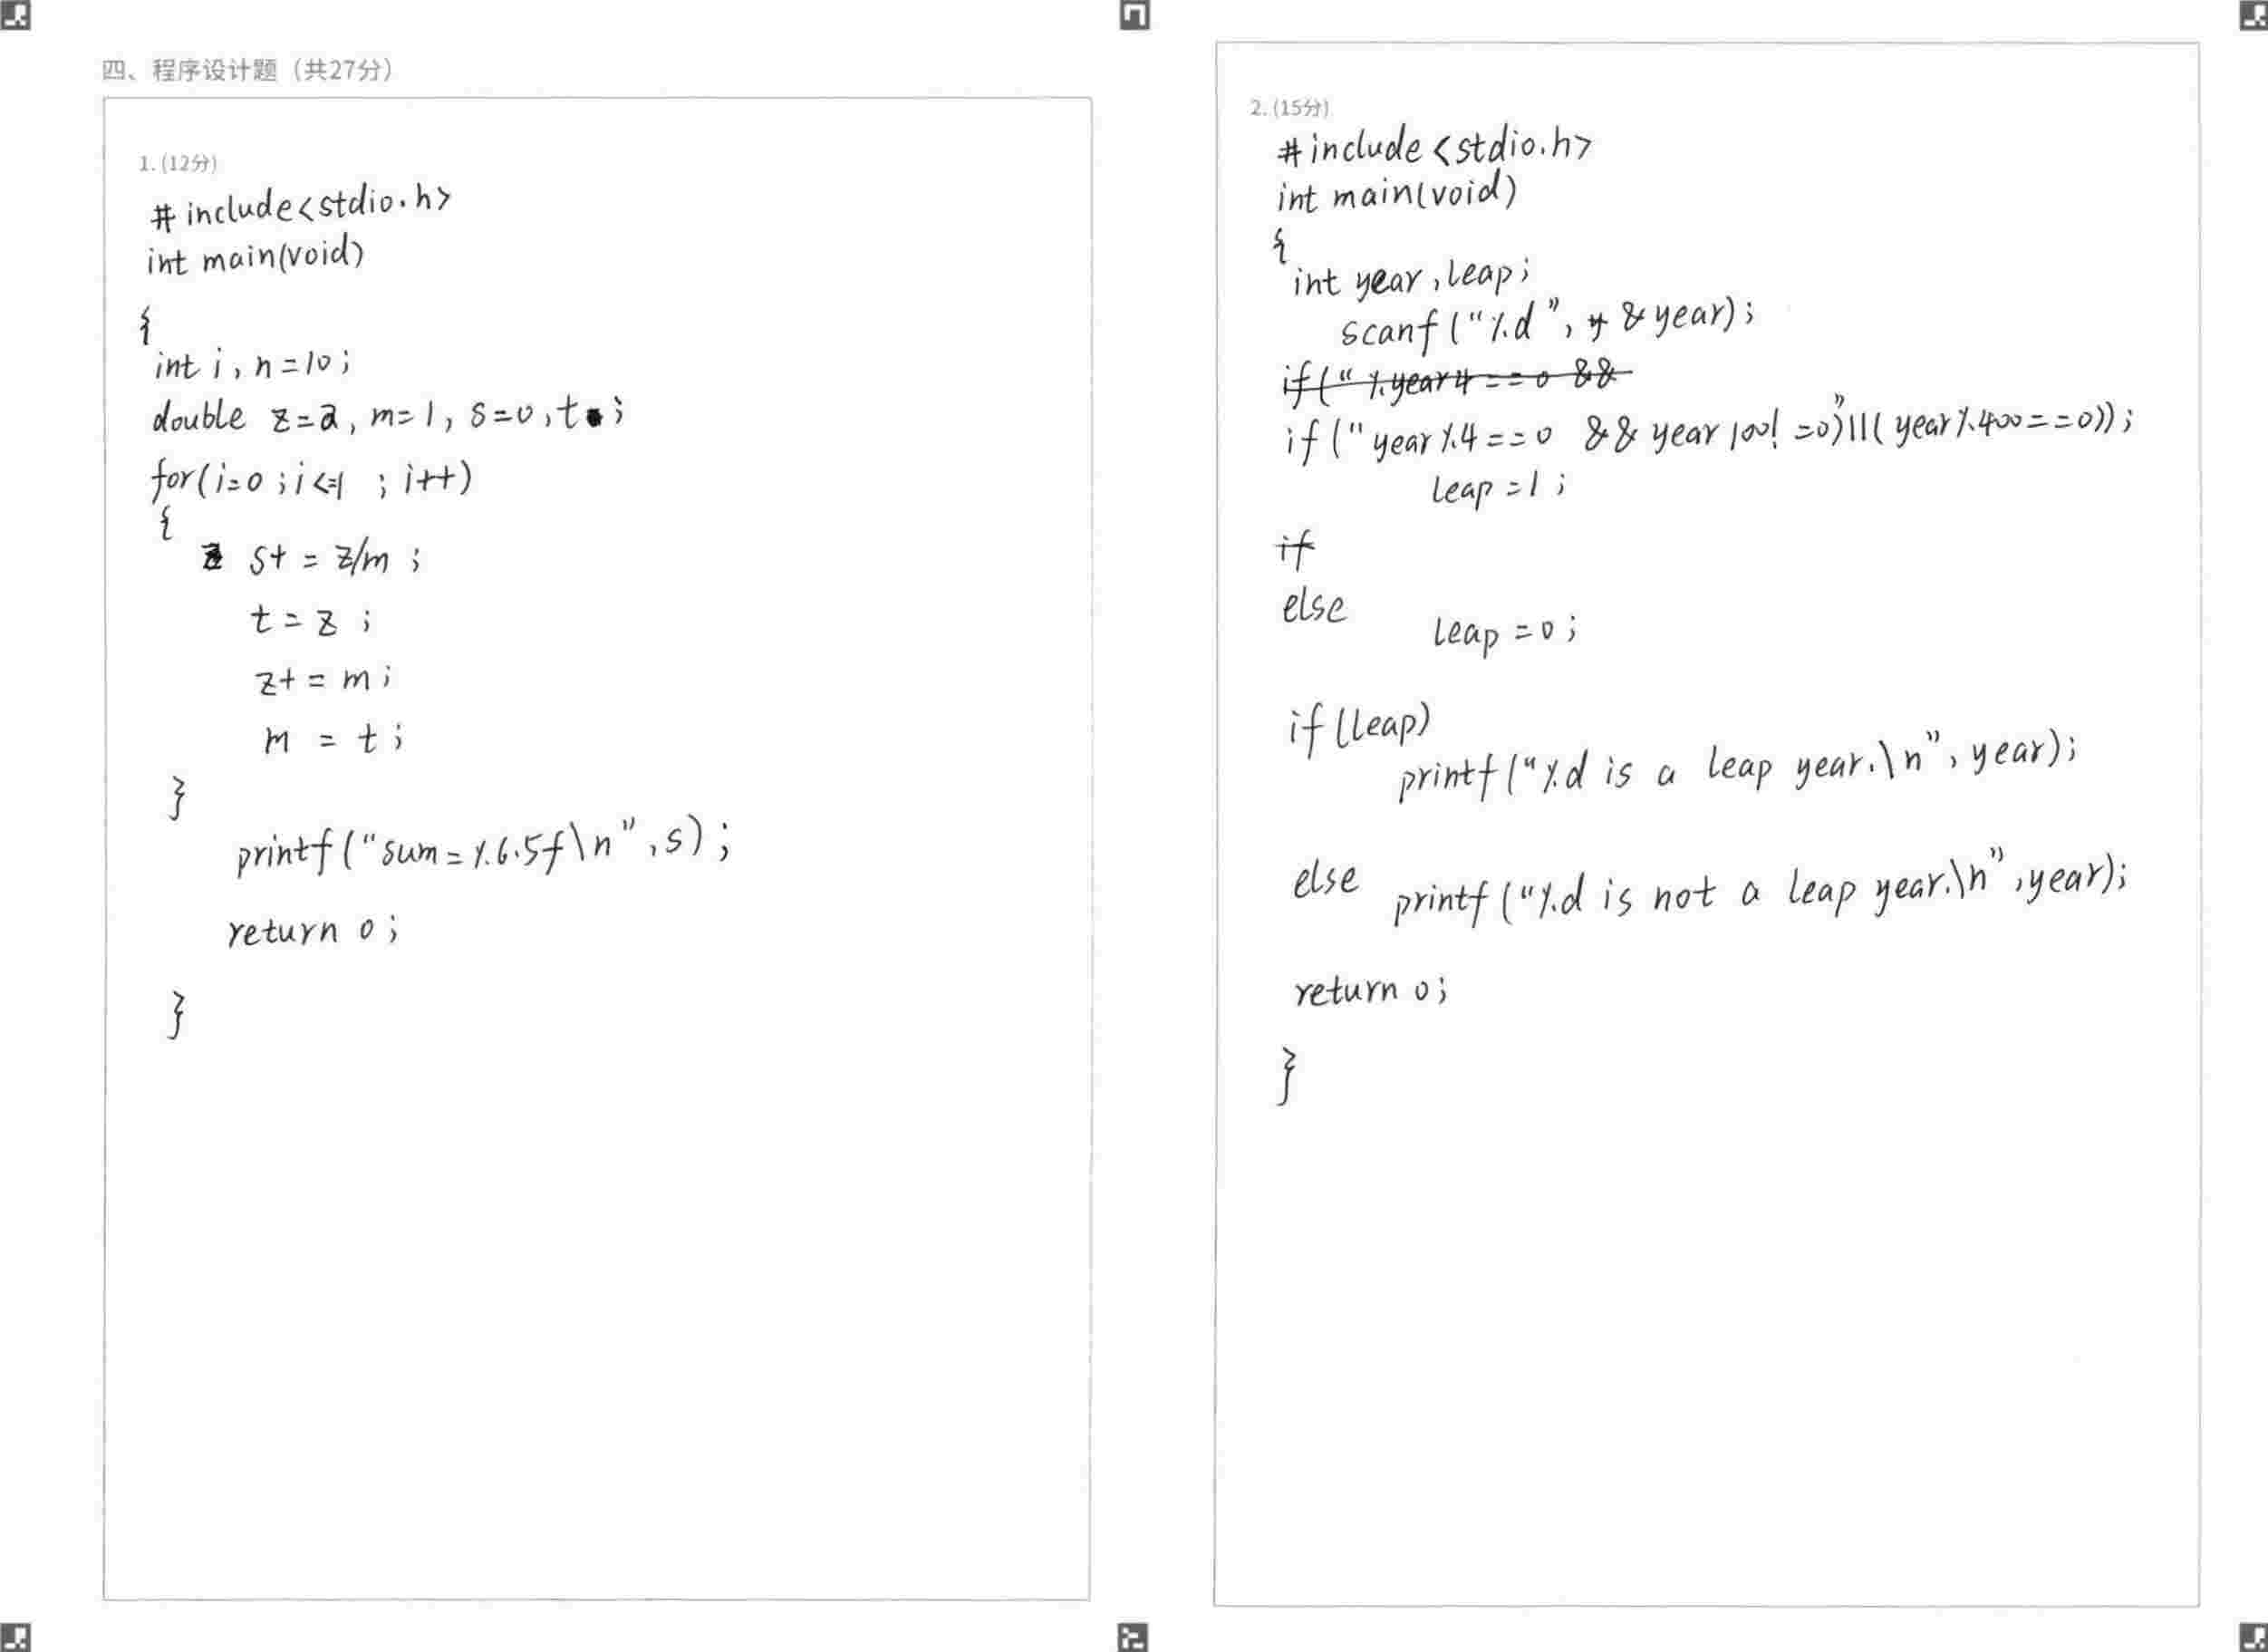 四、程序设计题（共27分）
1. (12分)
#include<stdio.h>
int main(void)
{
int i, n=10;
double z=2, m=1, s=0, t;
for(i=0;i<=1 ;i++)
{
s+ = z/m ;
t = z ;
z+ = m ;
m = t ;
}
printf("sum=%6.5f\n", s);
return 0 ;
}
2. (15分)
#include<stdio.h>
int main(void)
{
int year, leap;
scanf("%d", &year);
if(" %year4 == 0 &&
if("year%4==0 && year100!=0")||(year%400==0));
leap=1;
if
else
leap=0;
if(leap)
printf("%d is a leap year.\n", year);
else printf("%d is not a leap year.\n",year);
return 0;
}